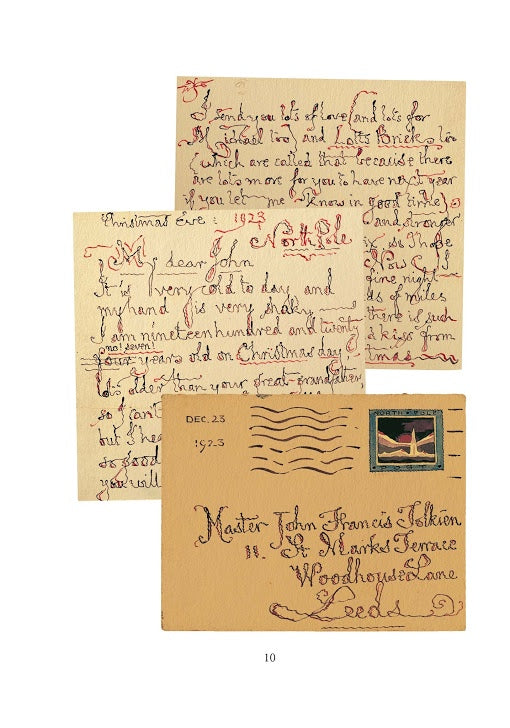 I send you lots of love (and lots for
Michael too) and Lotts Bricks too
(which are called that because there
are lots more for you to have next year
if you let me know in good time)
and stronger
so I hope
Now I
fine night
ds of miles
there is such
d a kiss from
tmas
Christmas Eve : 1923
North Pole
My dear John
It is very cold to day and
my hand is very shaky
I am nineteen hundred and twenty
no! seven!
four years old on Christmas day
lots older than your great-grandfather,
so I can't
but I hea
so good
you will
DEC. 23
1923
NORTH POLE
Master John Francis Tolkien
11. St Marks Terrace
Woodhouse Lane
Leeds
10